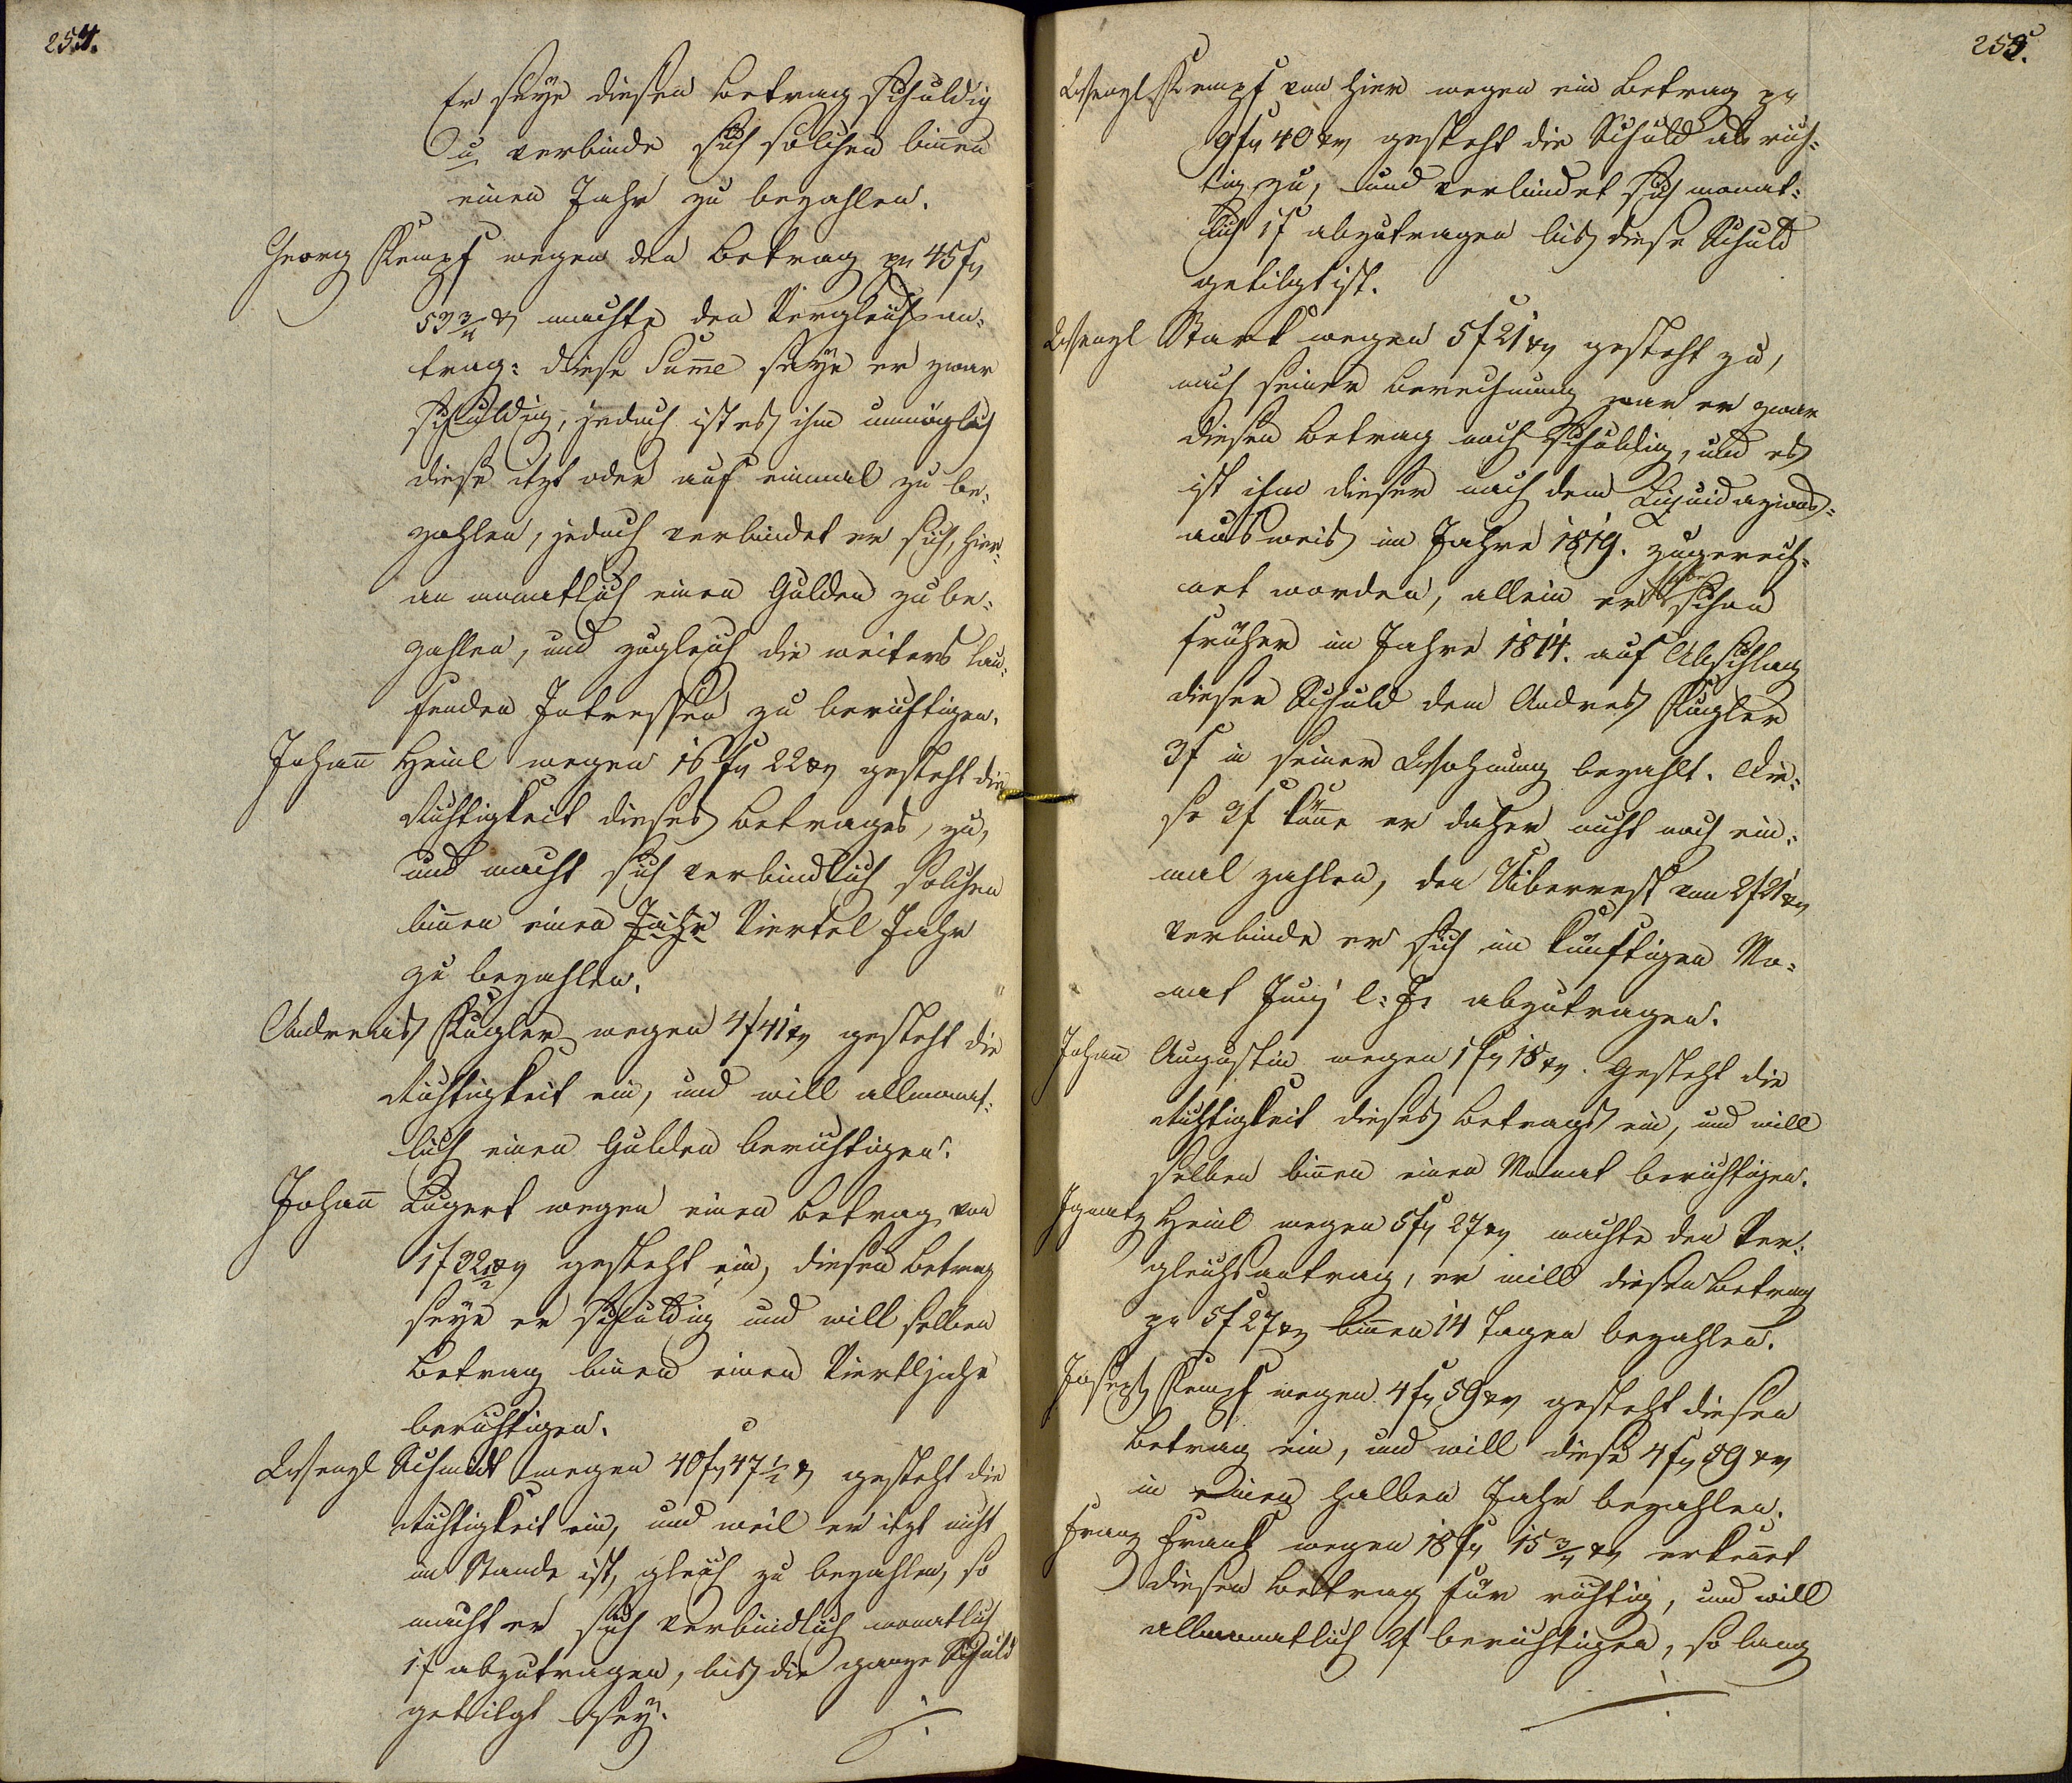 254.
Er seÿe diesen Betrag schuldig
u verbinde sich solchen binnen
einen Jahr zu bezahlen.
Georg Kempf wegen den Betrag pr 45 f
53 3/4 x machte den Vergleichsan-
trag: diese Sume seÿe er zwar
schuldig, jedoch ist es ihm unmöglich
diese itzt oder auf einmal zu be-
zahlen, jedoch verbindet er sich, hier-
an monatlich einen Gulden zu be-
zahlen, und zugleich die weiters lau-
fenden Intressen zu berichtigen.
Johann Heinl wegen 16 f 22 xr gesteht die
Richtigkeit dieses Betrages, zu,
und macht sich verbindlich solchen
binnen einen Jahr Viertel Jahr
zu bezahlen.
Andreas Kugler wegen 4 f 41 xr gesteht die
Richtigkeit ein, und will allmonat-
lich einen Gulden berichtigen.
Johann Lugert wegen einen Betrag von
1 f 32 xr gesteht ein, diesen Betrag
seÿe er schuldig und will selben
Betrag binnen einen Viertljahr
berichtigen.
Wenzl Schmidt wegen 40 f 47 1/2 x gesteht die
Richtigkeit ein, und weil er itzt nicht
im Stande ist, gleich zu bezahlen, so
macht er sich verbindlich monatlich
1 f abzutragen, bis die ganze Schuld
getilgt seÿ.
255.
Wenzl Kempf von hier wegen ein Betrag pr
9 f 40 xr gesteht die Schuld als rich-
tig zu, und verbindet sich monat-
lich 1 f abzutragen bis diese Schuld
getilgt ist.
Wenzl Stark wegen 5 f 21 xr gesteht zu,
nach seiner Berechnung war er zwar
diesen Betrag noch schuldig, und es
ist ihm dieser nach dem Liquidazions-
ausweis im Jahre 1819. zugerech-
net worden, allein er schon
früher im Jahre 1814. auf Abschlag
dieser Schuld dem Andreas Kugler
3 f in seiner Wohnung bezahlt. Die-
se 3 f könne er daher nicht noch ein-
mal zahlen, den Uiberrest von 2 f 21 xr
verbinde er sich im künftigen Mo-
nat Junÿ l: J: abzutragen.
Johann Augustin wegen 1 f 18 xr. Gesteht die
Richtigkeit dieses Betrags ein, und will
selben binnen einen Monat berichtigen.
Ignatz Heinl wegen 5 f 27 xr machte den Ver-
gleichsantrag, er will diesen Betrag
pr 5 f 27 xr binnen 14 Tagen bezahlen.
Joseph Kempf wegen 4 f 59 xr gesteht diesen
Betrag ein, und will diese 4 f 59 xr
in einen halben Jahr bezahlen.
Franz Frank wegen 18 f 15 3/4 xr erkennet
diesen Betrag für richtig, und will
allmonatlich 2 f berichtigen, so lang